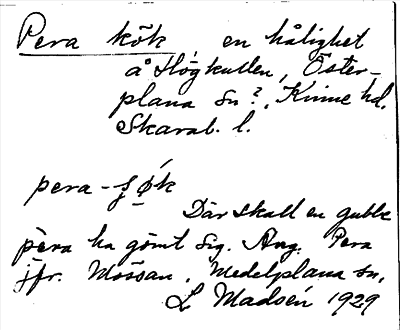 Pera kök, en hålighet
å Högkullen, Öster-
plana sn?, Kinne hd.
Skarab. l.
pera - ʂøk
Där skall en gubbe
pèra ha gömt sig. Ang. Pera
jfr. Mössan, Medelplana sn,
L Madsén 1929